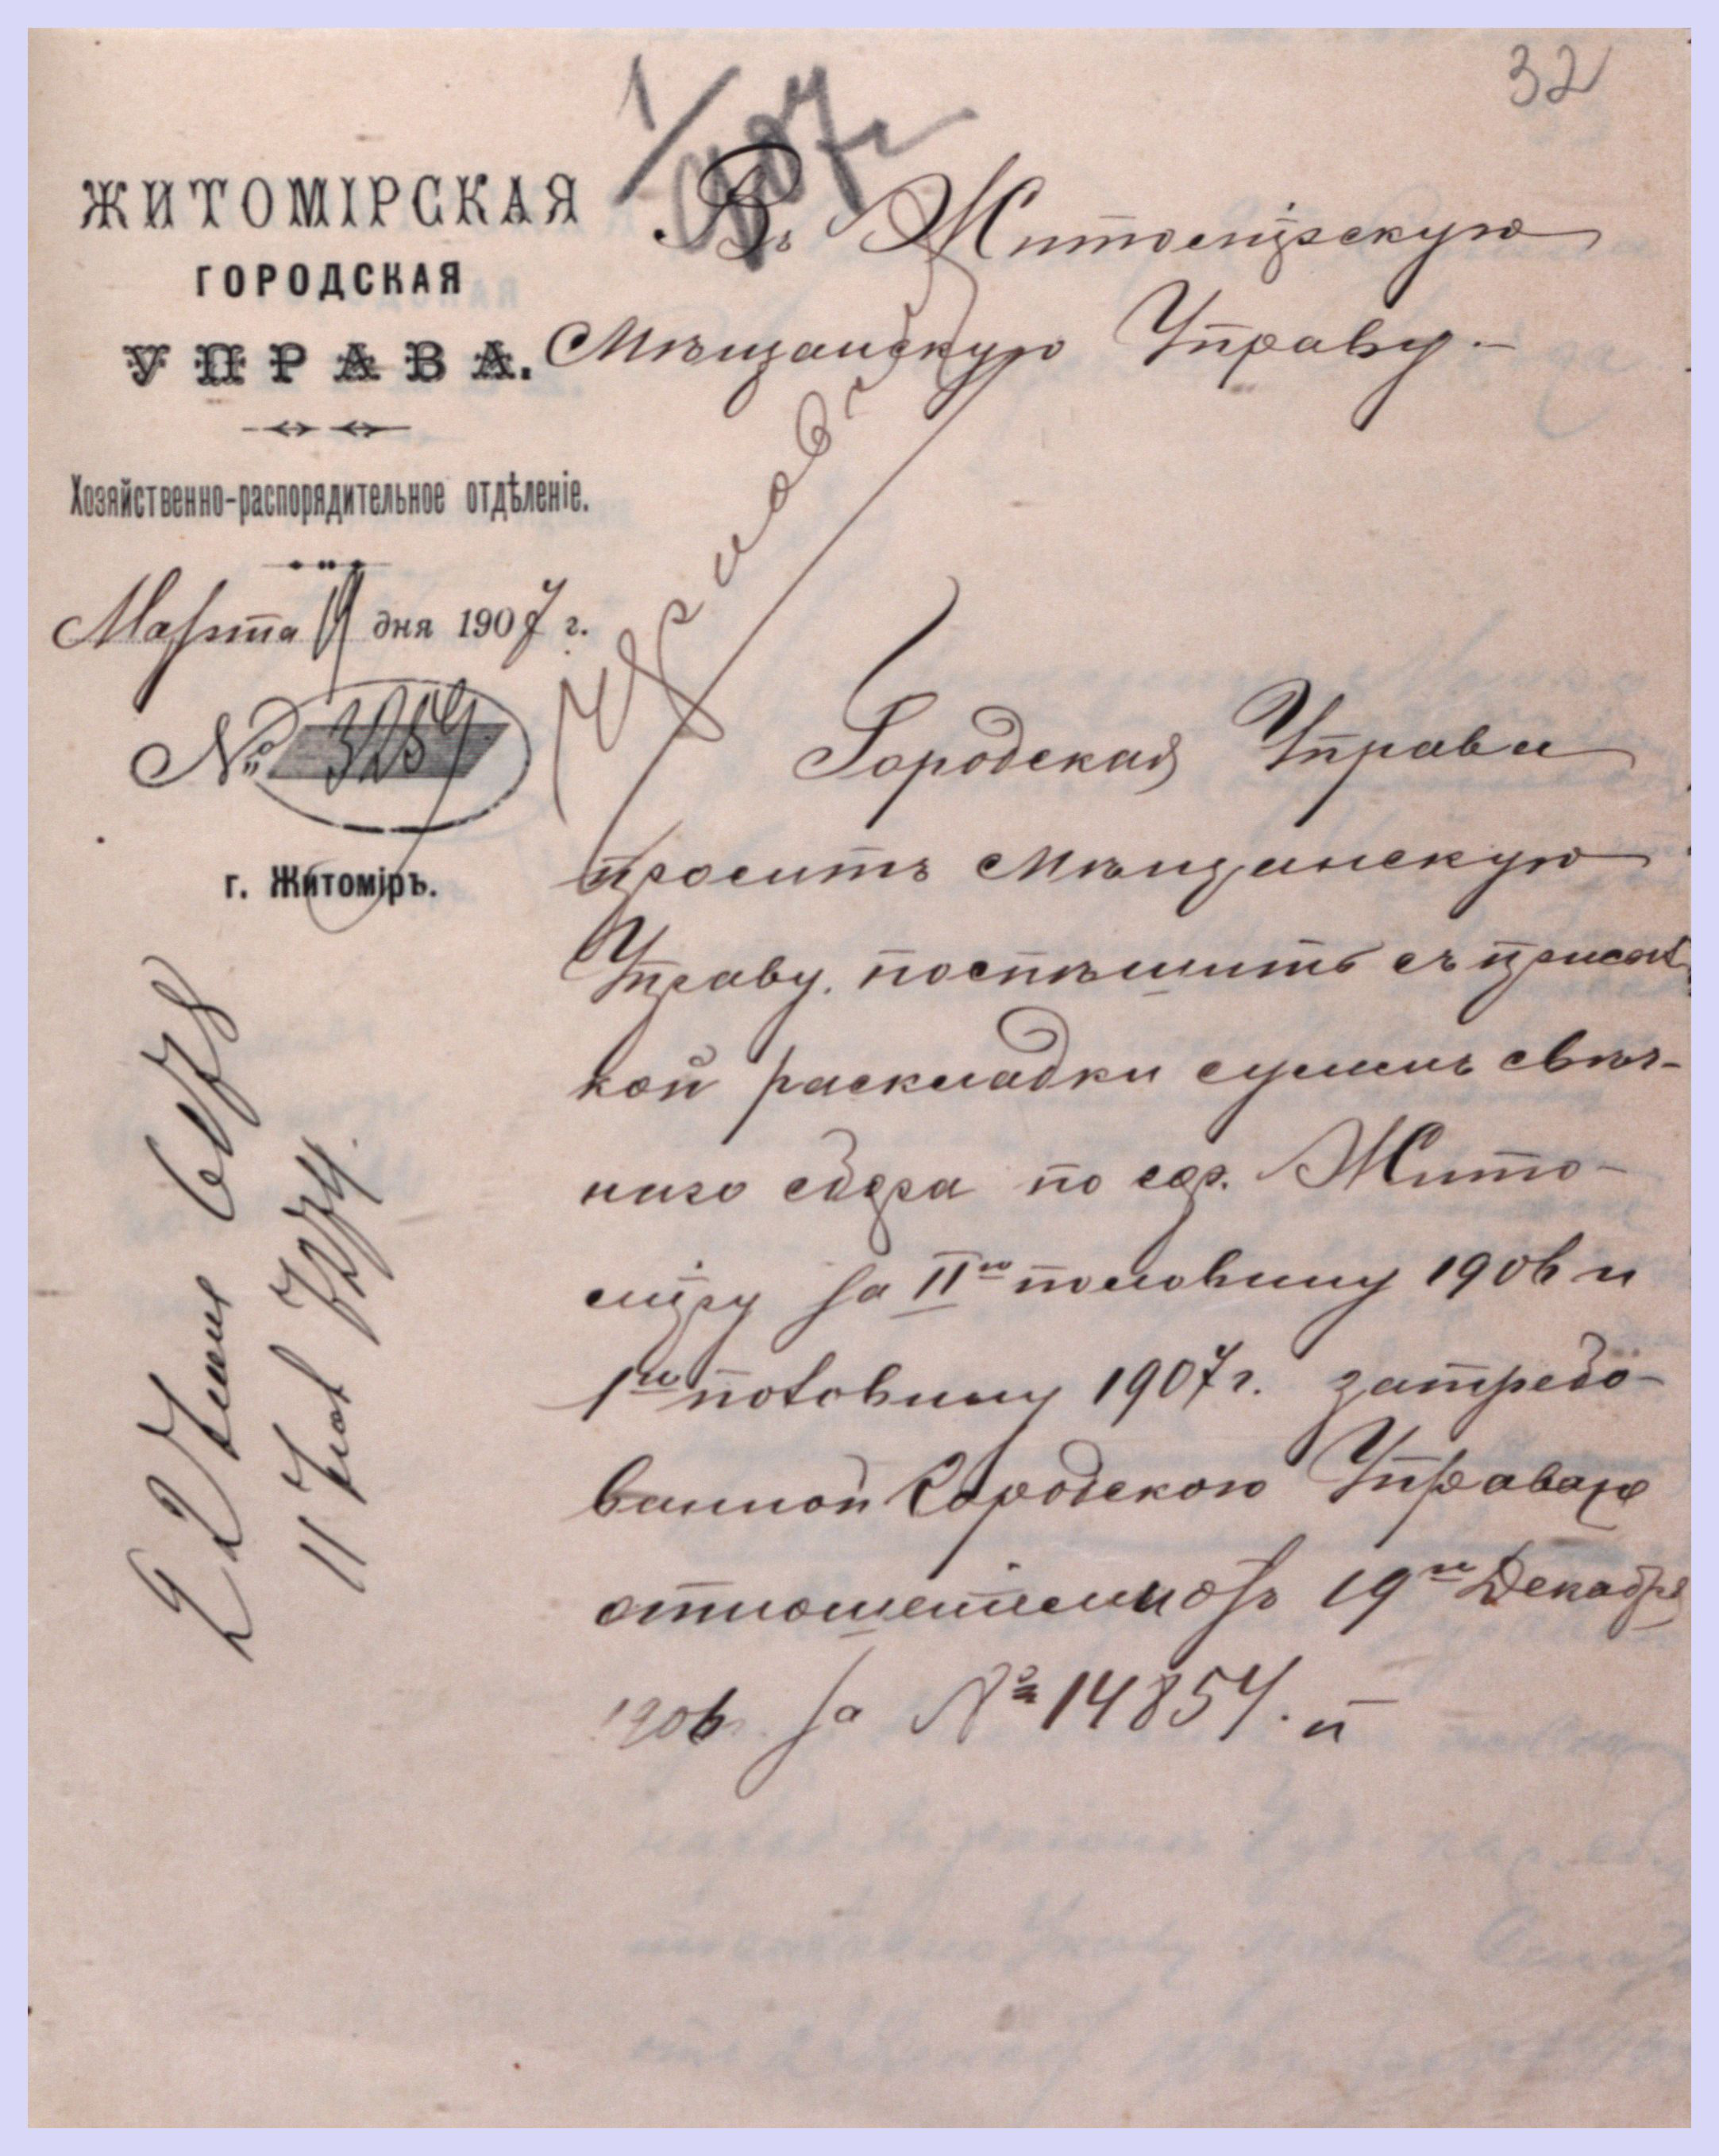 32
1/907 г
ЖИТОМІРСКАЯ
ГОРОДСКАЯ
УПРАВА.
Хозяйственно-распорядительное отдѣленіе.
Марта 19 дня 1907 г.
№ 3259
г. Житоміръ.
Въ Житомірскую
Мѣщанскую Управу.-
Городская Управа
проситъ Мѣщанскую
Управу, поспѣшить съ присыл
кой раскладки суммъ свѣч-
наго сбора по гор. Жито-
міру за IIю половину 1906 и
1ю половину 1907 г. затребо-
ванной Городскою Управою
отношеніемъ отъ 19го Декабря
1906 за № 14854. и
22
11